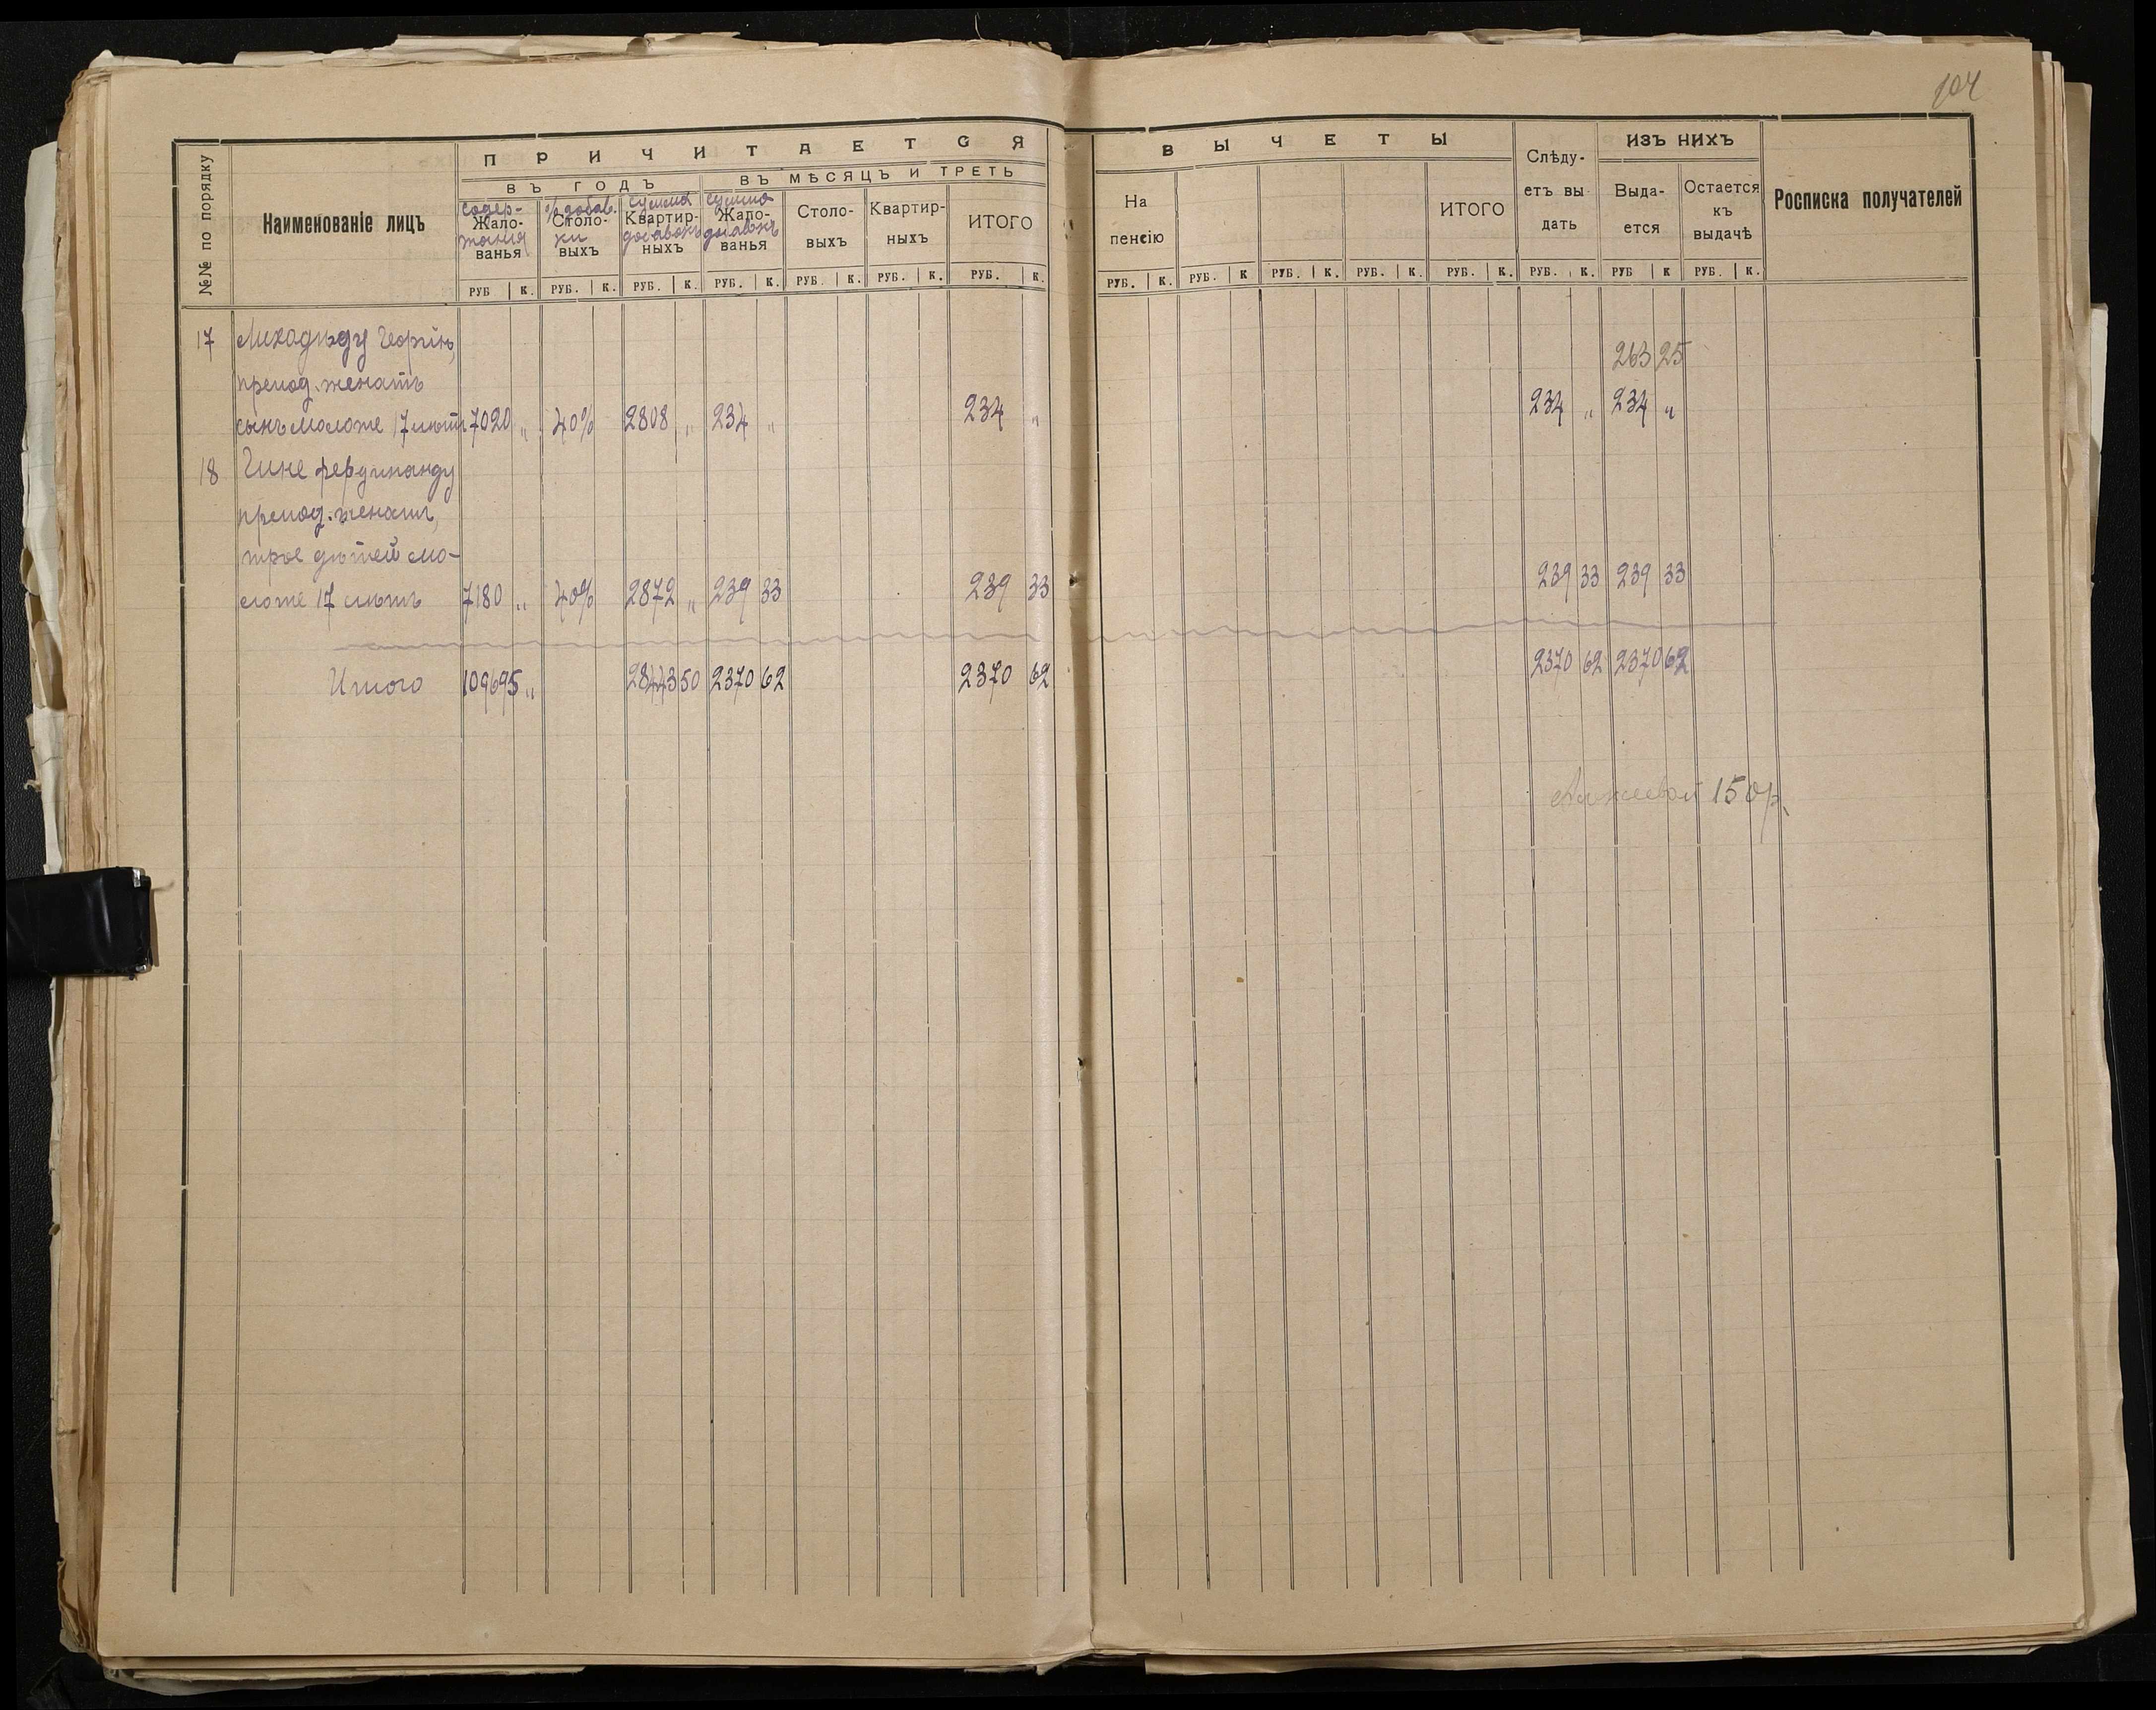 104
№№ по порядку
Наименованіе лицъ
ПРИЧИТАЕТСЯ
ВЪ ГОДЪ
ВЪ МѢСЯЦЪ И ТРЕТЬ
содер-жанія
Жало-ванья
% добав-ки
Столо-выхъ
сумма добавокъ
Квартир-ныхъ
сумма добавокъ
Жало-ванья
Столо-выхъ
Квартир-ныхъ
ИТОГО
РУБ К. РУБ. К. РУБ. К. РУБ. К. РУБ. К. РУБ. К. РУБ. К.
ВЫЧЕТЫ
На пенсію
ИТОГО
Слѣду-етъ вы дать
ИЗЪ НИХЪ
Выда-ется
Остается къ выдачѣ
Росписка получателей
РУБ. К. РУБ. К РУБ. К. РУБ. К. РУБ. К. РУБ. К. РУБ К РУБ. К.
17
263 25
препод. женатъ
сынъ моложе 17 лѣтъ 7020 „ 40% 2808 „ 234 „ 234 „ 234 „ 234 „
18 Гине Фердинанду
препод. женатъ,
трое дѣтей мо-
ложе 17 лѣтъ 7180 „ 40% 2872 „ 239 33 239 33 239 33 239 33
Итого 109695 „ 28443 50 2370 62 2370 62 2370 62 2370 62
150 р.